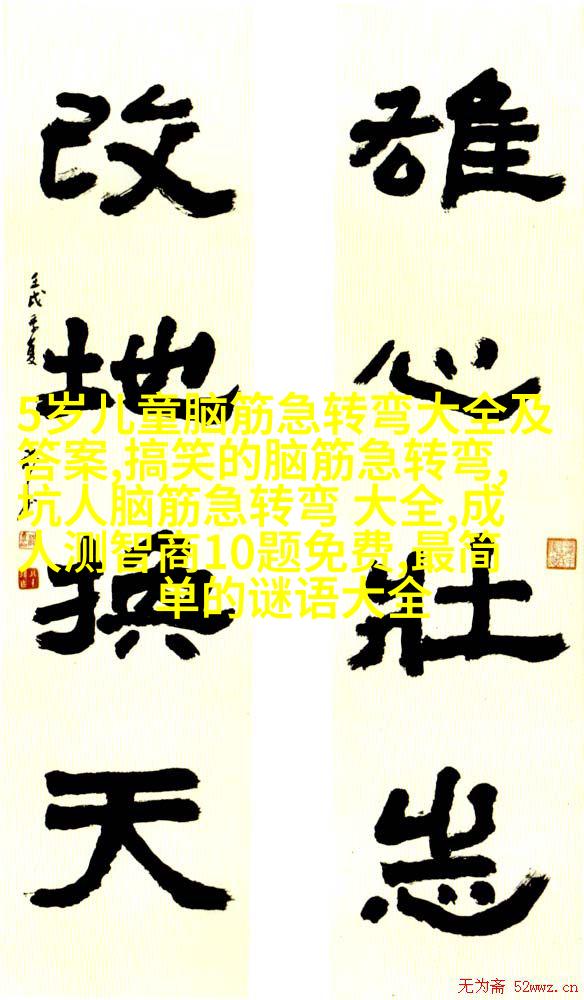 雄心壮志
改地换天
壬戌季夏
5岁儿童脑筋急转弯大全及
答案,搞笑的脑筋急转弯,
坑人脑筋急转弯 大全,成
人测智商10题免费,最简
单的谜语大全
无为斋 52wwz.cn